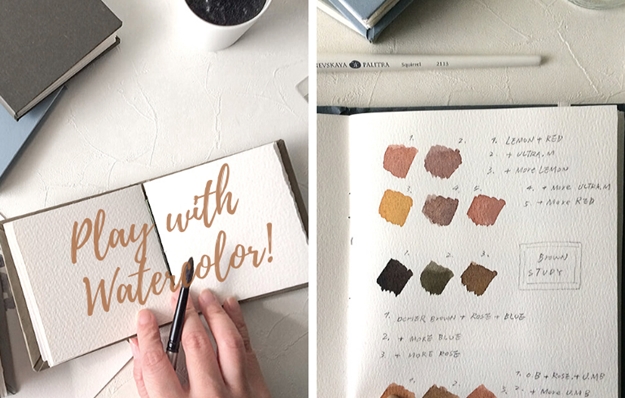 Play with
Watercolor!
EVSKAYA PALITRA Squirrel
1. 2. 1. LEMON + RED
2. + ULTRA.M
3. + MORE LEMON
3. 4. 5. 4. + MORE ULTRA.M
5. + MORE RED
1. 2. 3.
BROWN
STUDY
1. BROWN + ROSE + BLUE
2. + MORE BLUE
3. + MORE ROSE
1. O.B + ROSE + U.M.B
1. 2. 2. + MORE U.M.B